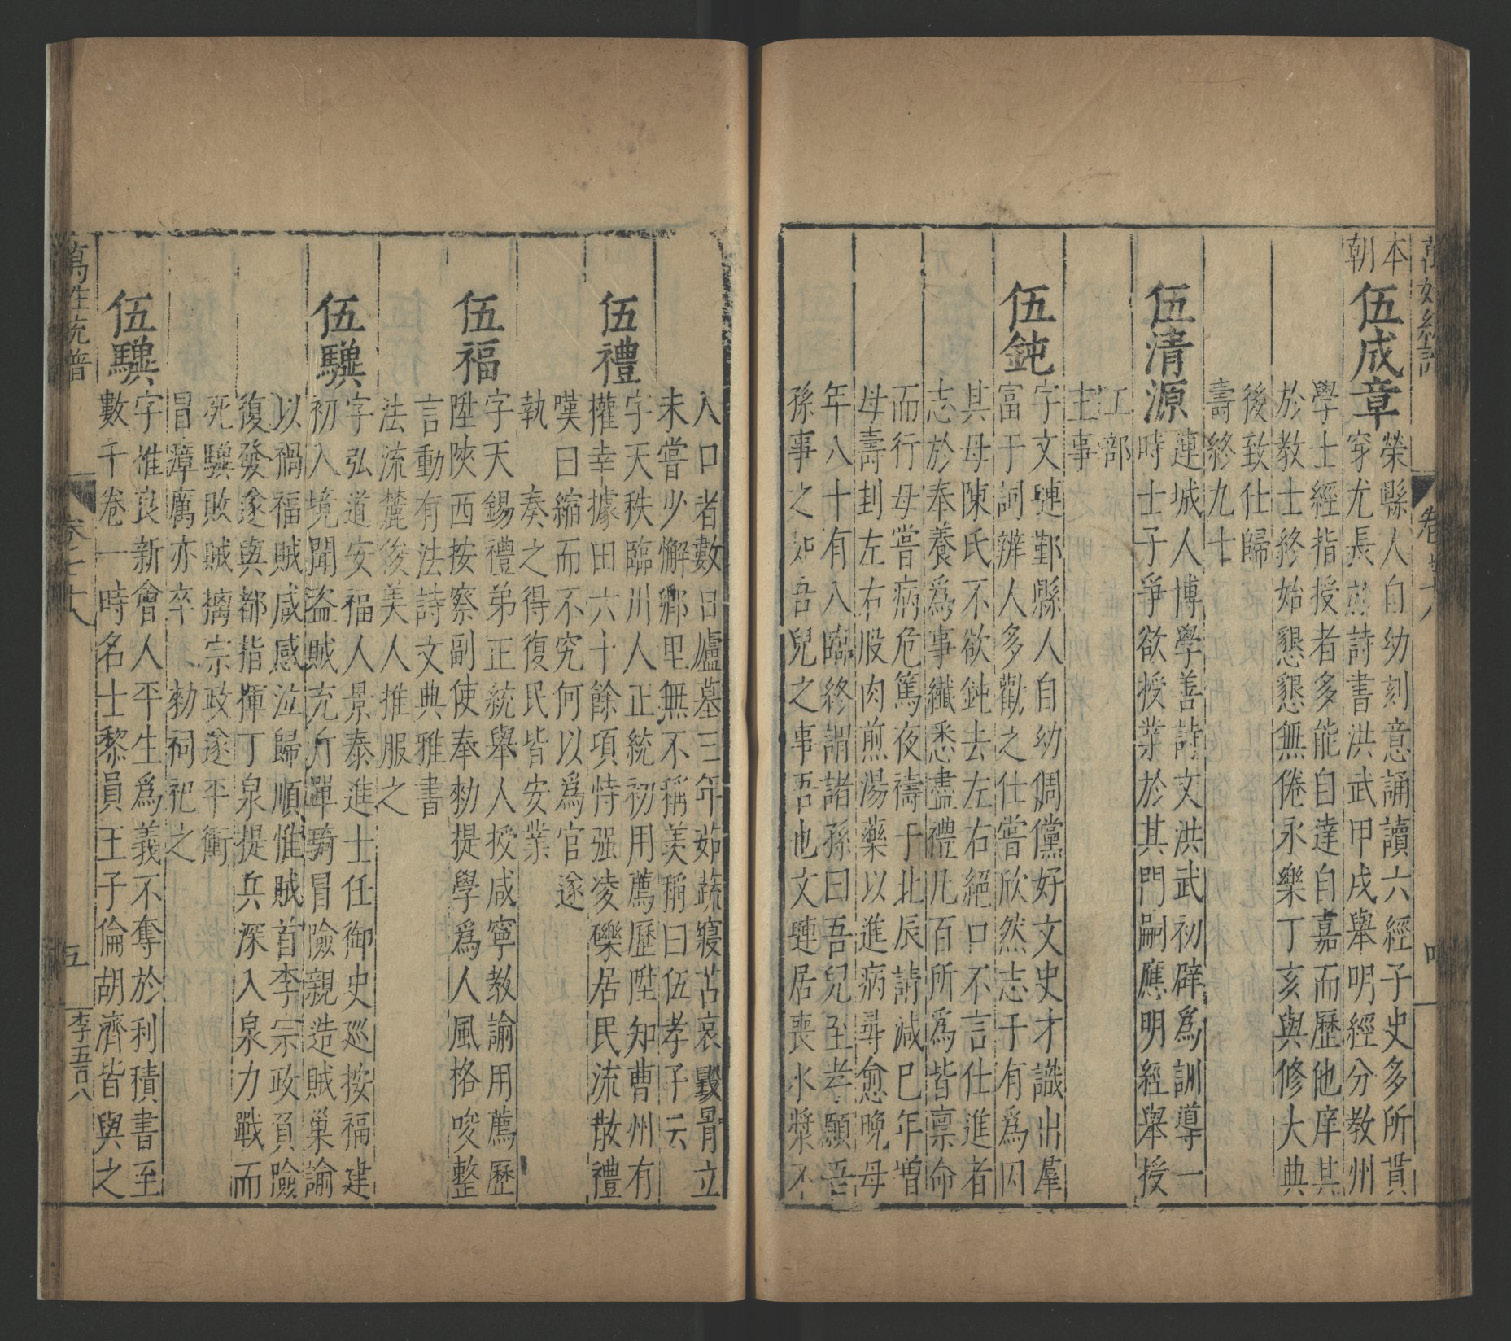 本朝
伍成章
榮縣人自幼刻意誦讀六經子史多所貫
穿尤長於詩書洪武甲戌舉明經分教州
學士經指授者多能自達自嘉而歷他庠其
於教士終始懇懇無倦永樂丁亥與修大典
後致仕歸
壽終九十
伍清源
連城人博學善詩文洪武初辟為訓導一
時士子爭欲授業於其門嗣應明經舉授
工部
主事
伍鈍
字文璉鄞縣人自幼倜儻好文史才識出羣
富于詞辨人多勸之仕嘗欣然志于有為因
其母陳氏不欲鈍去左右絕口不言仕進者
志於奉養為事纖悉盡禮凡百所為皆禀命
而行母嘗病危篤夜禱于北辰請減巳年增
母壽刲左右股肉煎湯藥以進病尋愈晚母
年八十有入臨終謂諸孫曰吾兒至孝願吾
孫事之如吾兒之事吾也文璉居喪水漿不
入口者數日廬墓三年茹蔬寢苫哀毀骨立
未嘗少懈鄉里無不稱美稱曰伍孝子云
伍禮
字天秩臨川人正統初用薦歷陞知曹州有
權幸據田六十餘項恃强凌礫居民流散禮
嘆曰縮而不究何以為官遂
執奏之得復民皆安業
伍福
字天錫禮弟正統舉人授咸寧教諭用薦歷
陞陝西按察副使奉勑提學為人風格唆整
言動有法詩文典雅書
法流麓後美人推服之
伍驥
字弘道安福人景泰進士任御史巡按福建
初入境聞盜賊充斥單騎冒險親造賊巢諭
以禍福賊咸感泣歸順惟賊首李宗政負險
復發遂與都指揮丁泉提兵深入泉力戰而
死驥敗賊擒宗政遂平衝
冒瘴厲亦卒勑祠祀之
伍驥
字惟良新會人平生為義不奪於利積書至
數千卷一時名士黎員王子倫胡濟皆與之
萬姓統譜
卷七十八
五
李五八